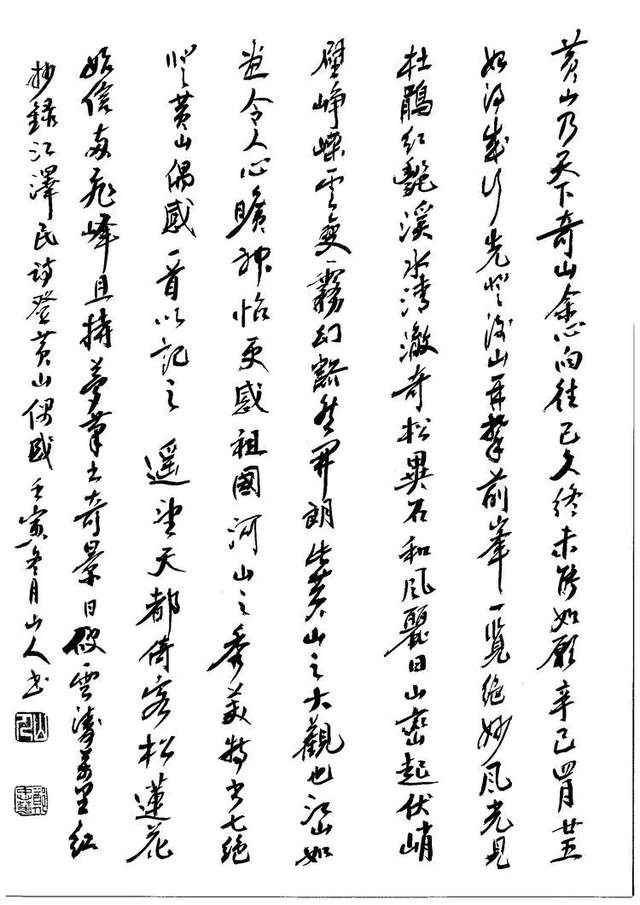 黄山乃天下奇山余心向往已久终未能如願辛巳四月廿五
始得成行先登后山再攀前峯一覧绝妙风光見
杜鹃红艷溪水清澈奇松異石和风麗日山峦起伏峭
壁峥嵘云变霧幻豁然开朗此黄山之大觀也江山如
畫令人心曠神怡更感祖國河山之秀美特书七绝
登黄山偶感一首以記之 遥望天都倚客松莲花
始信两飞峰且持梦筆书奇景日破雲涛萬里红
抄録江澤民诗登黄山偶感壬寅冬月山人书